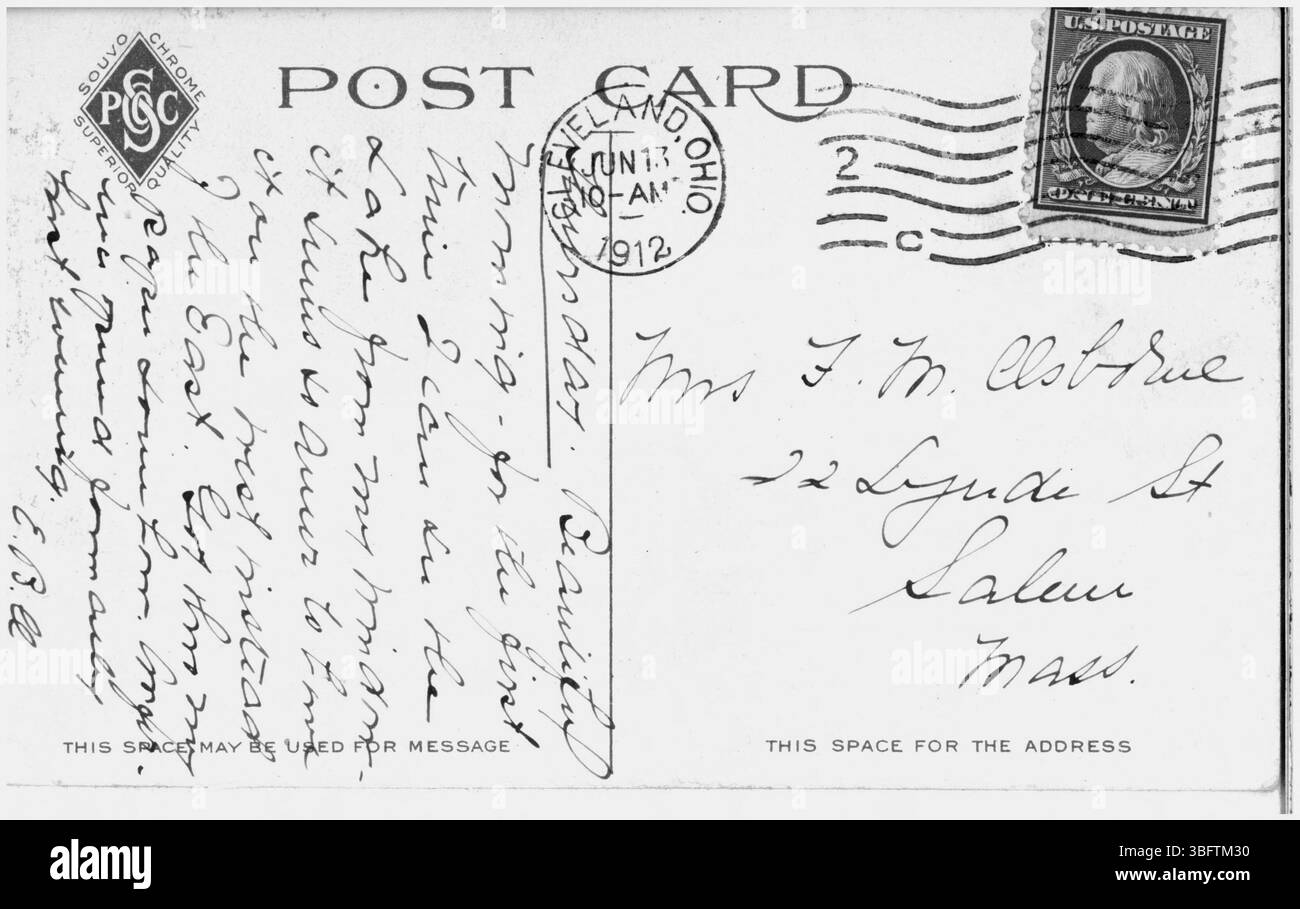 SOUVO CHROME
PSCC
SUPERIOR QUALITY
POST CARD
CLEVELAND, OHIO.
JUN 13
10-AM
1912
2
C
U.S. POSTAGE
ONE CENT
Thursday. Beautiful
morning - for the first
time I can see the
Lake from my window -
it seems so queer to have
it on the West instead
of the East. Got
down town.
last evening.
E.B.O
Mrs F. M. Osborne
22 Lynde St
Salem
Mass.
THIS SPACE MAY BE USED FOR MESSAGE
THIS SPACE FOR THE ADDRESS
alamy
alamy
Image ID: 3BFTM30
www.alamy.com